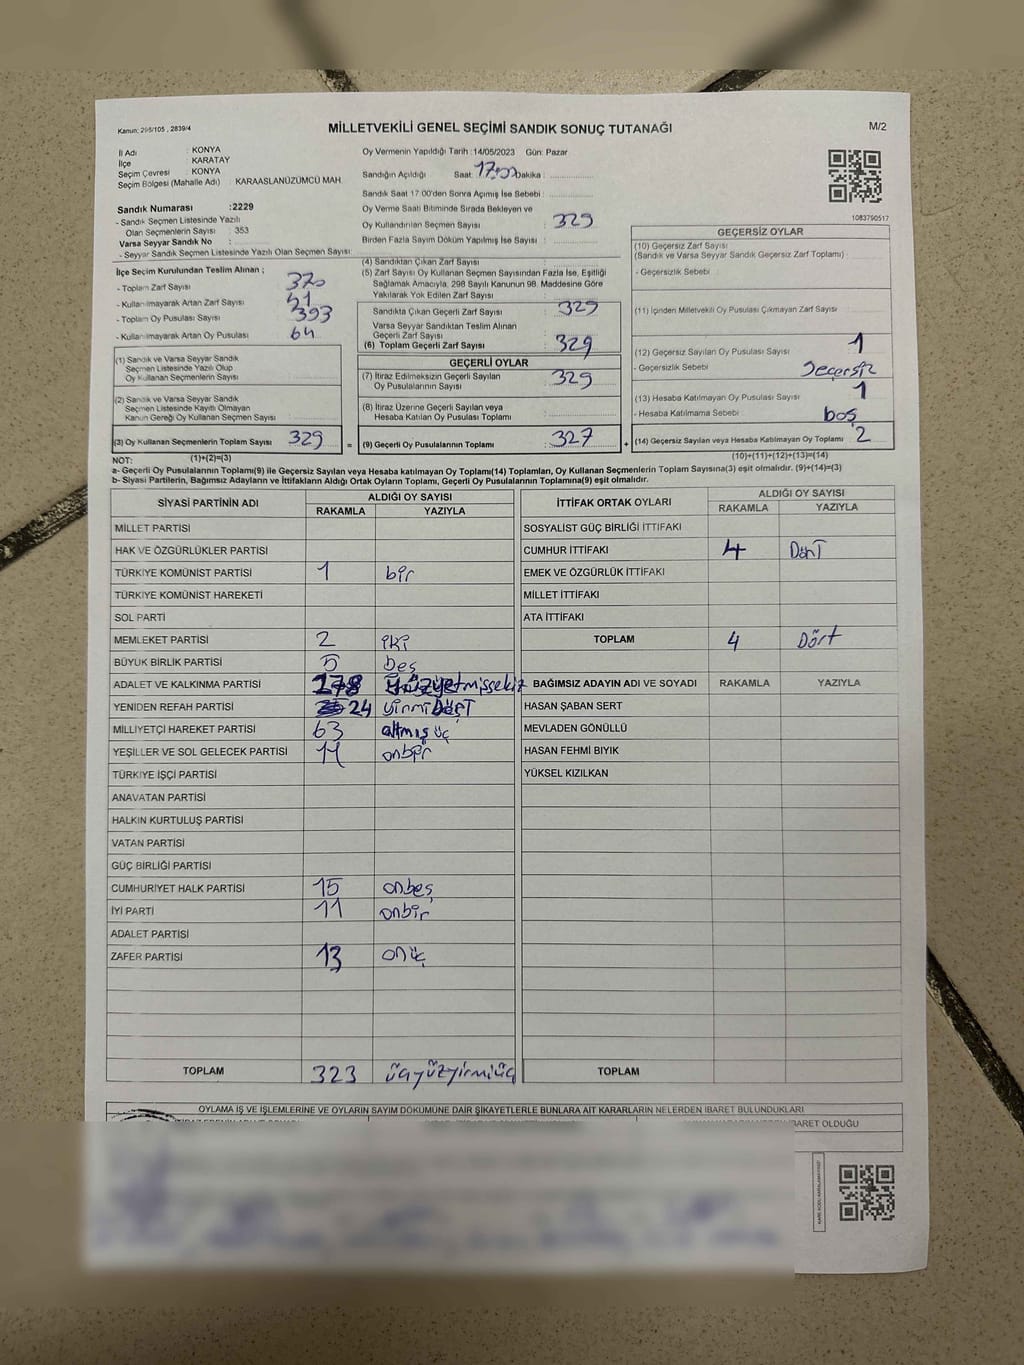 Kanun: 298/105 , 2839/4
MİLLETVEKİLİ GENEL SEÇİMİ SANDIK SONUÇ TUTANAĞI
M/2
İl Adı : KONYA
İlçe : KARATAY
Seçim Çevresi : KONYA
Seçim Bölgesi (Mahalle Adı) : KARAASLANÜZÜMCÜ MAH.
Sandık Numarası :2229
- Sandık Seçmen Listesinde Yazılı
Olan Seçmenlerin Sayısı : 353
Varsa Seyyar Sandık No :
- Seyyar Sandık Seçmen Listesinde Yazılı Olan Seçmen Sayısı:
İlçe Seçim Kurulundan Teslim Alınan ;
- Toplam Zarf Sayısı 370
- Kullanılmayarak Artan Zarf Sayısı 41
- Toplam Oy Pusulası Sayısı 393
- Kullanılmayarak Artan Oy Pusulası 64
(1) Sandık ve Varsa Seyyar Sandık
Seçmen Listesinde Yazılı Olup
Oy Kullanan Seçmenlerin Sayısı
(2) Sandık ve Varsa Seyyar Sandık
Seçmen Listesinde Kayıtlı Olmayan
Kanun Gereği Oy Kullanan Seçmen Sayısı
(3) Oy Kullanan Seçmenlerin Toplam Sayısı 329 =
Oy Vermenin Yapıldığı Tarih :14/05/2023 Gün: Pazar
Sandığın Açıldığı Saat: 17:00 Dakika :
Sandık Saat 17:00'den Sonra Açılmış İse Sebebi :
Oy Verme Saati Bitiminde Sırada Bekleyen ve
Oy Kullandırılan Seçmen Sayısı : 329
Birden Fazla Sayım Döküm Yapılmış İse Sayısı :
(4) Sandıktan Çıkan Zarf Sayısı
(5) Zarf Sayısı Oy Kullanan Seçmen Sayısından Fazla İse, Eşitliği
Sağlamak Amacıyla, 298 Sayılı Kanunun 98. Maddesine Göre
Yakılarak Yok Edilen Zarf Sayısı
Sandıkta Çıkan Geçerli Zarf Sayısı : 329
Varsa Seyyar Sandıktan Teslim Alınan
Geçerli Zarf Sayısı
(6) Toplam Geçerli Zarf Sayısı : 329
GEÇERLİ OYLAR
(7) İtiraz Edilmeksizin Geçerli Sayılan
Oy Pusulalarının Sayısı : 329
(8) İtiraz Üzerine Geçerli Sayılan veya
Hesaba Katılan Oy Pusulası Toplamı
(9) Geçerli Oy Pusulalarının Toplamı : 327 +
1083790517
GEÇERSİZ OYLAR
(10) Geçersiz Zarf Sayısı
(Sandık ve Varsa Seyyar Sandık Geçersiz Zarf Toplamı) :
- Geçersizlik Sebebi :
(11) İçinden Milletvekili Oy Pusulası Çıkmayan Zarf Sayısı
(12) Geçersiz Sayılan Oy Pusulası Sayısı : 1
- Geçersizlik Sebebi : Geçersiz
(13) Hesaba Katılmayan Oy Pusulası Sayısı : 1
- Hesaba Katılmama Sebebi : boş
(14) Geçersiz Sayılan veya Hesaba Katılmayan Oy Toplamı : 2
NOT: (1)+(2)=(3) (10)+(11)+(12)+(13)=(14)
a- Geçerli Oy Pusulalarının Toplamı(9) ile Geçersiz Sayılan veya Hesaba katılmayan Oy Toplamı(14) Toplamları, Oy Kullanan Seçmenlerin Toplam Sayısına(3) eşit olmalıdır. (9)+(14)=(3)
b- Siyasi Partilerin, Bağımsız Adayların ve İttifakların Aldığı Ortak Oyların Toplamı, Geçerli Oy Pusulalarının Toplamına(9) eşit olmalıdır.
SİYASİ PARTİNİN ADI ALDIĞI OY SAYISI
RAKAMLA YAZIYLA
MİLLET PARTİSİ
HAK VE ÖZGÜRLÜKLER PARTİSİ
TÜRKİYE KOMÜNİST PARTİSİ 1 bir
TÜRKİYE KOMÜNİST HAREKETİ
SOL PARTİ
MEMLEKET PARTİSİ 2 iki
BÜYÜK BİRLİK PARTİSİ 5 beş
ADALET VE KALKINMA PARTİSİ 178 yüzyetmişsekiz
YENİDEN REFAH PARTİSİ 24 yirmidört
MİLLİYETÇİ HAREKET PARTİSİ 63 altmış üç
YEŞİLLER VE SOL GELECEK PARTİSİ 11 onbir
TÜRKİYE İŞÇİ PARTİSİ
ANAVATAN PARTİSİ
HALKIN KURTULUŞ PARTİSİ
VATAN PARTİSİ
GÜÇ BİRLİĞİ PARTİSİ
CUMHURİYET HALK PARTİSİ 15 onbeş
İYİ PARTİ 11 onbir
ADALET PARTİSİ
ZAFER PARTİSİ 13 onüç
TOPLAM 323 üçyüzyirmiüç
İTTİFAK ORTAK OYLARI ALDIĞI OY SAYISI
RAKAMLA YAZIYLA
SOSYALİST GÜÇ BİRLİĞİ İTTİFAKI
CUMHUR İTTİFAKI 4 Dört
EMEK VE ÖZGÜRLÜK İTTİFAKI
MİLLET İTTİFAKI
ATA İTTİFAKI
TOPLAM 4 Dört
BAĞIMSIZ ADAYIN ADI VE SOYADI RAKAMLA YAZIYLA
HASAN ŞABAN SERT
MEVLADEN GÖNÜLLÜ
HASAN FEHMİ BIYIK
YÜKSEL KIZILKAN
TOPLAM
OYLAMA İŞ VE İŞLEMLERİNE VE OYLARIN SAYIM DÖKÜMÜNE DAİR ŞİKAYETLERLE BUNLARA AİT KARARLARIN NELERDEN İBARET BULUNDUKLARI
İBARET OLDUĞU